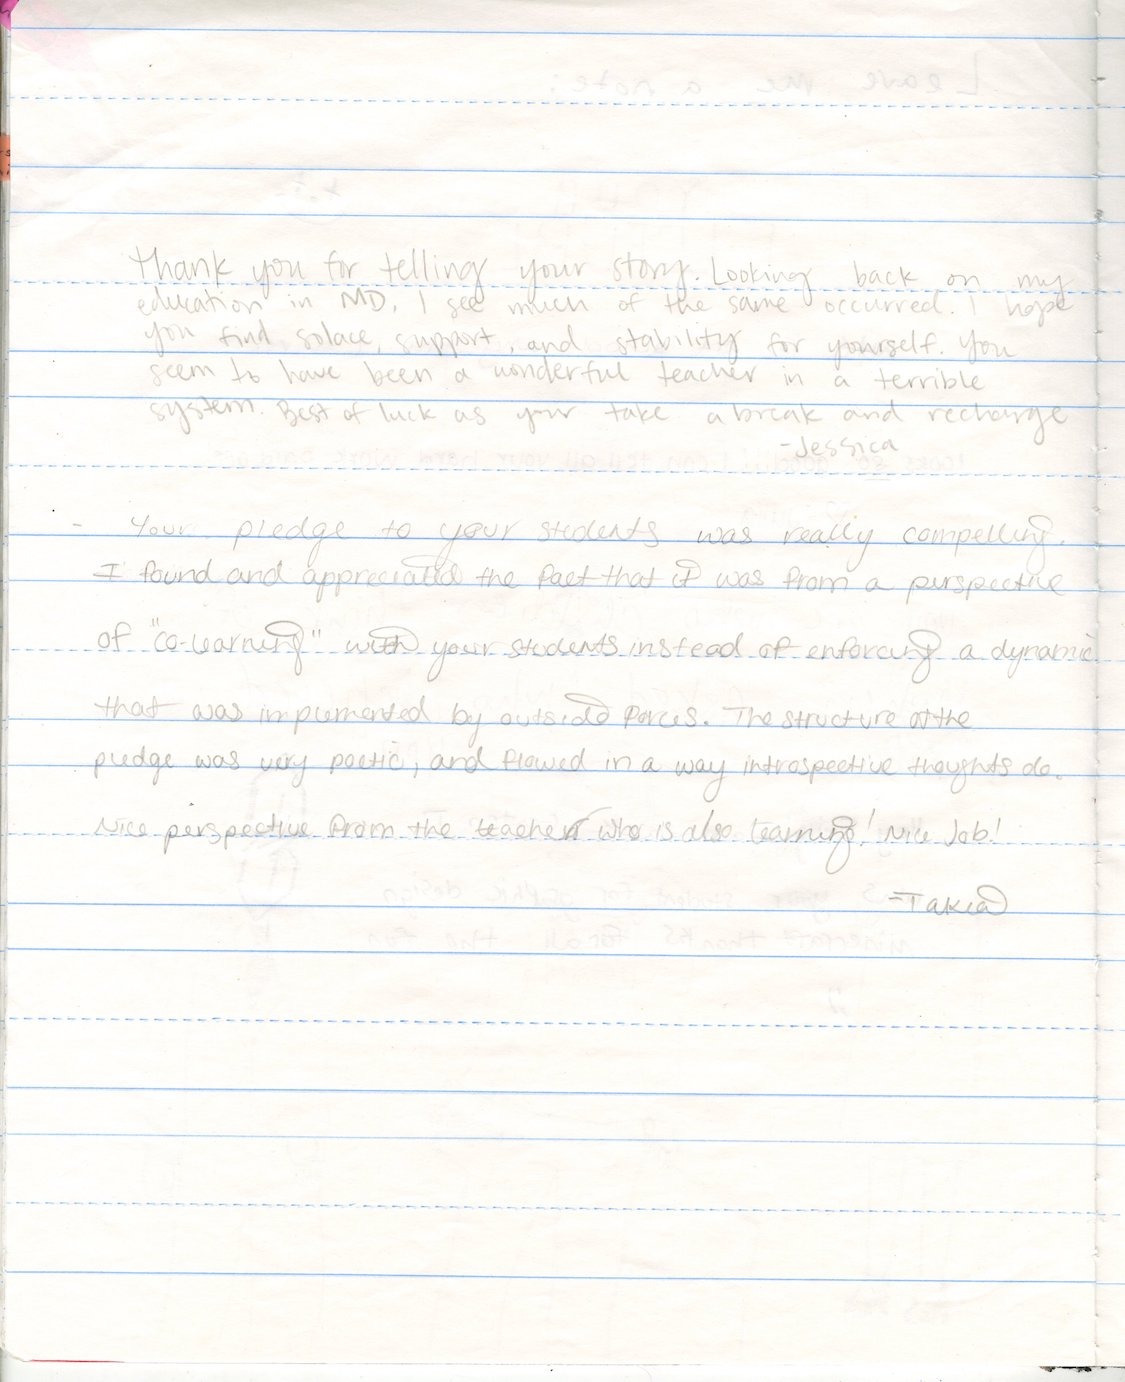 Thank you for telling your story. Looking back on my
education in MD, I see much of the same occurred. I hope
you find solace, support, and stability for yourself. You
seem to have been a wonderful teacher in a terrible
system. Best of luck as your take a break and recharge
-Jessica
- Your pledge to your students was really compelling.
I found and appreciated the fact that it was from a perspective
of "co-learning" with your students instead of enforcing a dynamic
that was implemented by outside forces. The structure of the
pledge was very poetic, and flowed in a way introspective thoughts do.
Nice perspective from the teacher who is also learning! Nice Job!
-Takia